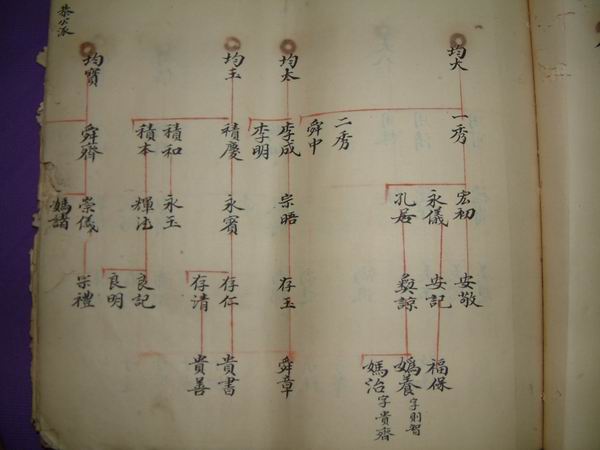 均大
均太
均玉
均寶
恭公派
一秀
二秀
舜中
李成
李明
積慶
積和
積本
舜薺
宏初
永儀
孔居
宗晤
永賓
永玉
輝法
崇儀
媽諸
安敬
安記
諒
存玉
存仁
存清
良記
良明
宗禮
福保
媽養字則智
媽治字貴齋
舜章
貴書
貴善